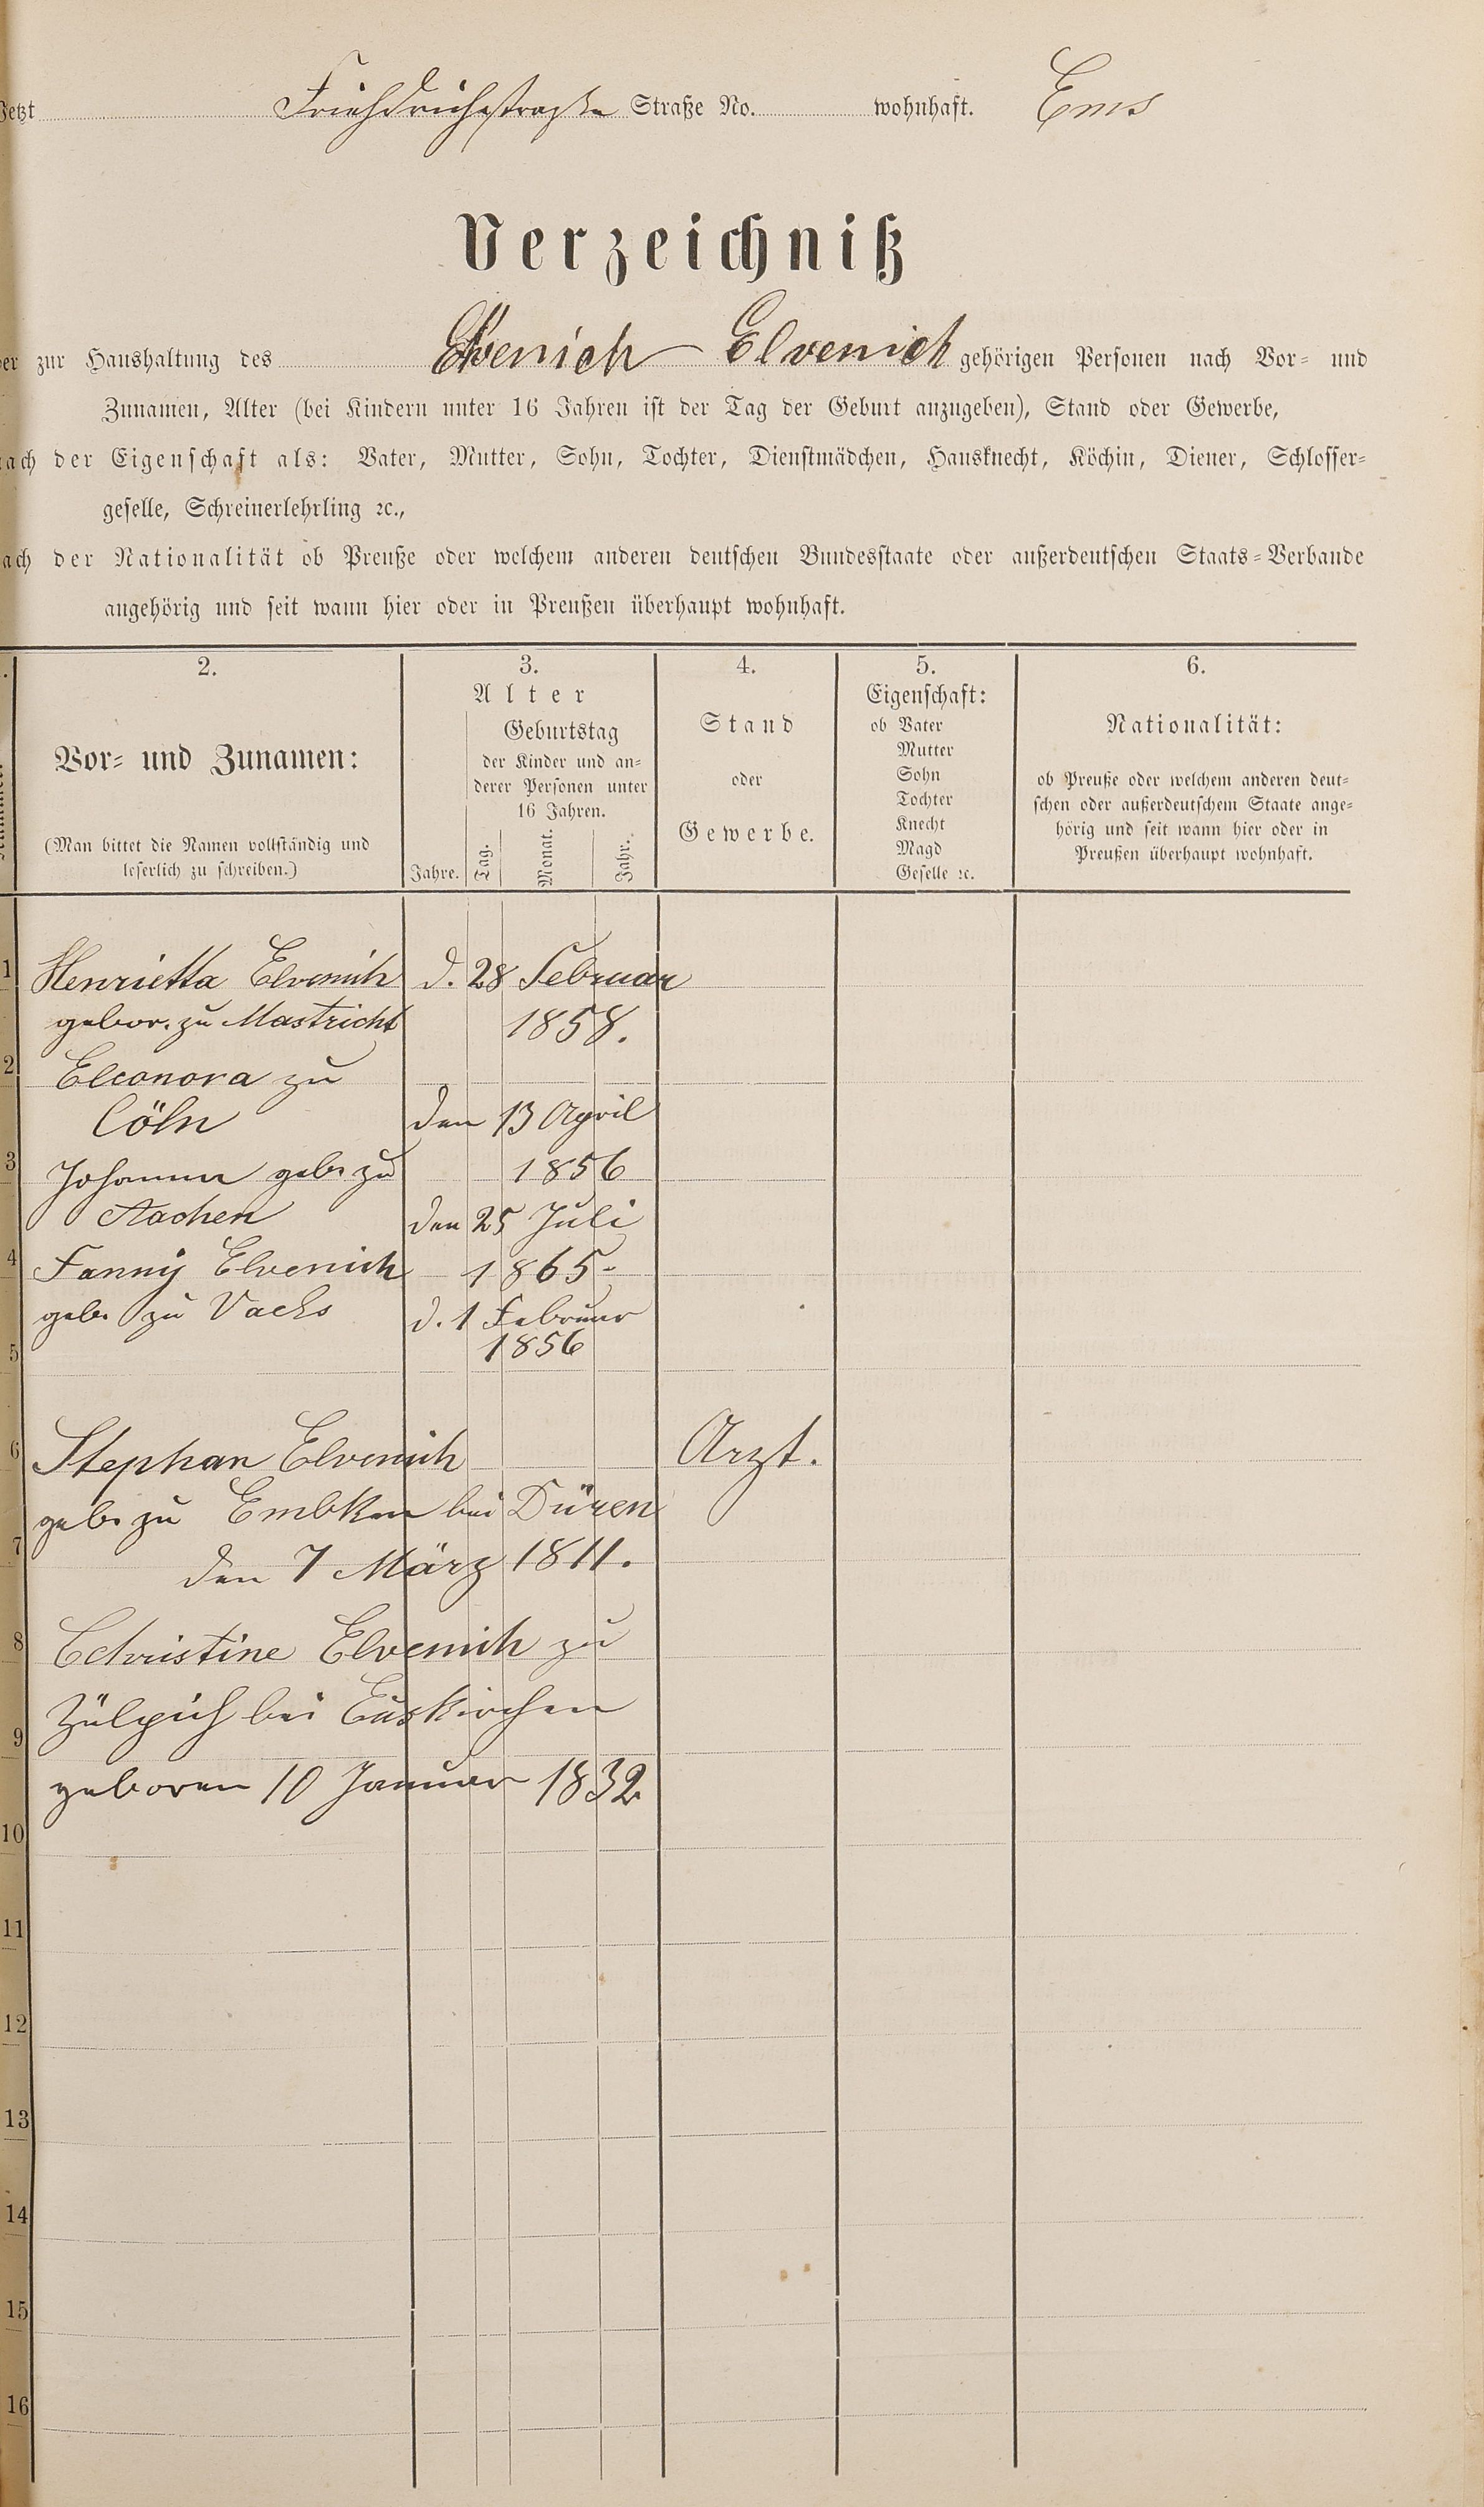 Jetzt Friehdrichstraße Straße No. wohnhaft. Ems
Verzeichniß
der zur Haushaltung des Elvenich Elvenich gehörigen Personen nach Vor- und
Zunamen, Alter (bei Kindern unter 16 Jahren ist der Tag der Geburt anzugeben), Stand oder Gewerbe,
nach der Eigenschaft als: Vater, Mutter, Sohn, Tochter, Dienstmädchen, Hausknecht, Köchin, Diener, Schlosser-
geselle, Schreinerlehrling ꝛc.,
nach der Nationalität ob Preuße oder welchem anderen deutschen Bundesstaate oder außerdeutschen Staats-Verbande
angehörig und seit wann hier oder in Preußen überhaupt wohnhaft.
2.
Vor- und Zunamen:
(Man bittet die Namen vollständig und
leserlich zu schreiben.)
3.
Alter
Geburtstag
der Kinder und an-
derer Personen unter
16 Jahren.
Jahre. Tag. Monat. Jahr.
4.
Stand
oder
Gewerbe.
5.
Eigenschaft:
ob Vater
Mutter
Sohn
Tochter
Knecht
Magd
Geselle ꝛc.
6.
Nationalität:
ob Preuße oder welchem anderen deut-
schen oder außerdeutschem Staate ange-
hörig und seit wann hier oder in
Preußen überhaupt wohnhaft.
1 Henrietta Elvenich d. 28 Februar
gebor. zu Mastricht 1858.
2 Eleonora zu
Cöln den 13 April
3 Johanna geb. zu 1856
Aachen den 25 Juli
4 Fanny Elvenich 1865-
geb. zu Vaels d. 1 Februar
5 1856
6 Stephan Elvenich Arzt.
geb. zu Embken bei Düren
7 den 7 März 1811.
8 Christine Elvenich zu
Zülpich bei Euskirchen
9
geboren 10 Januar 1832
10
11
12
13
14
15
16